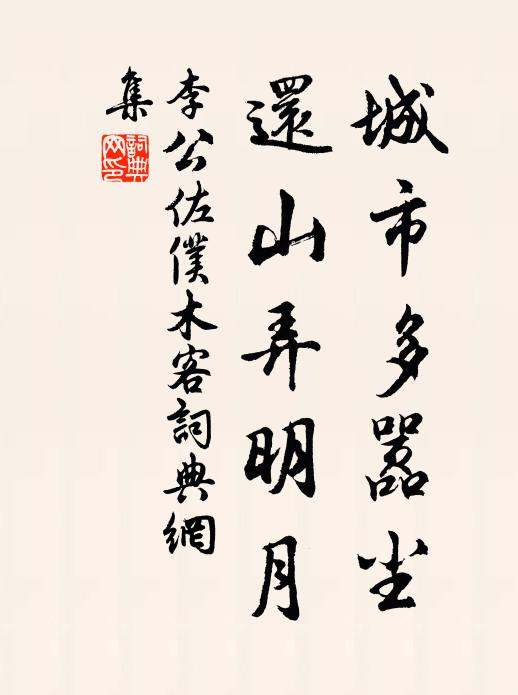 城市多囂尘
還山弄明月
李公佐僕木客詞典網
集
詞典
网印